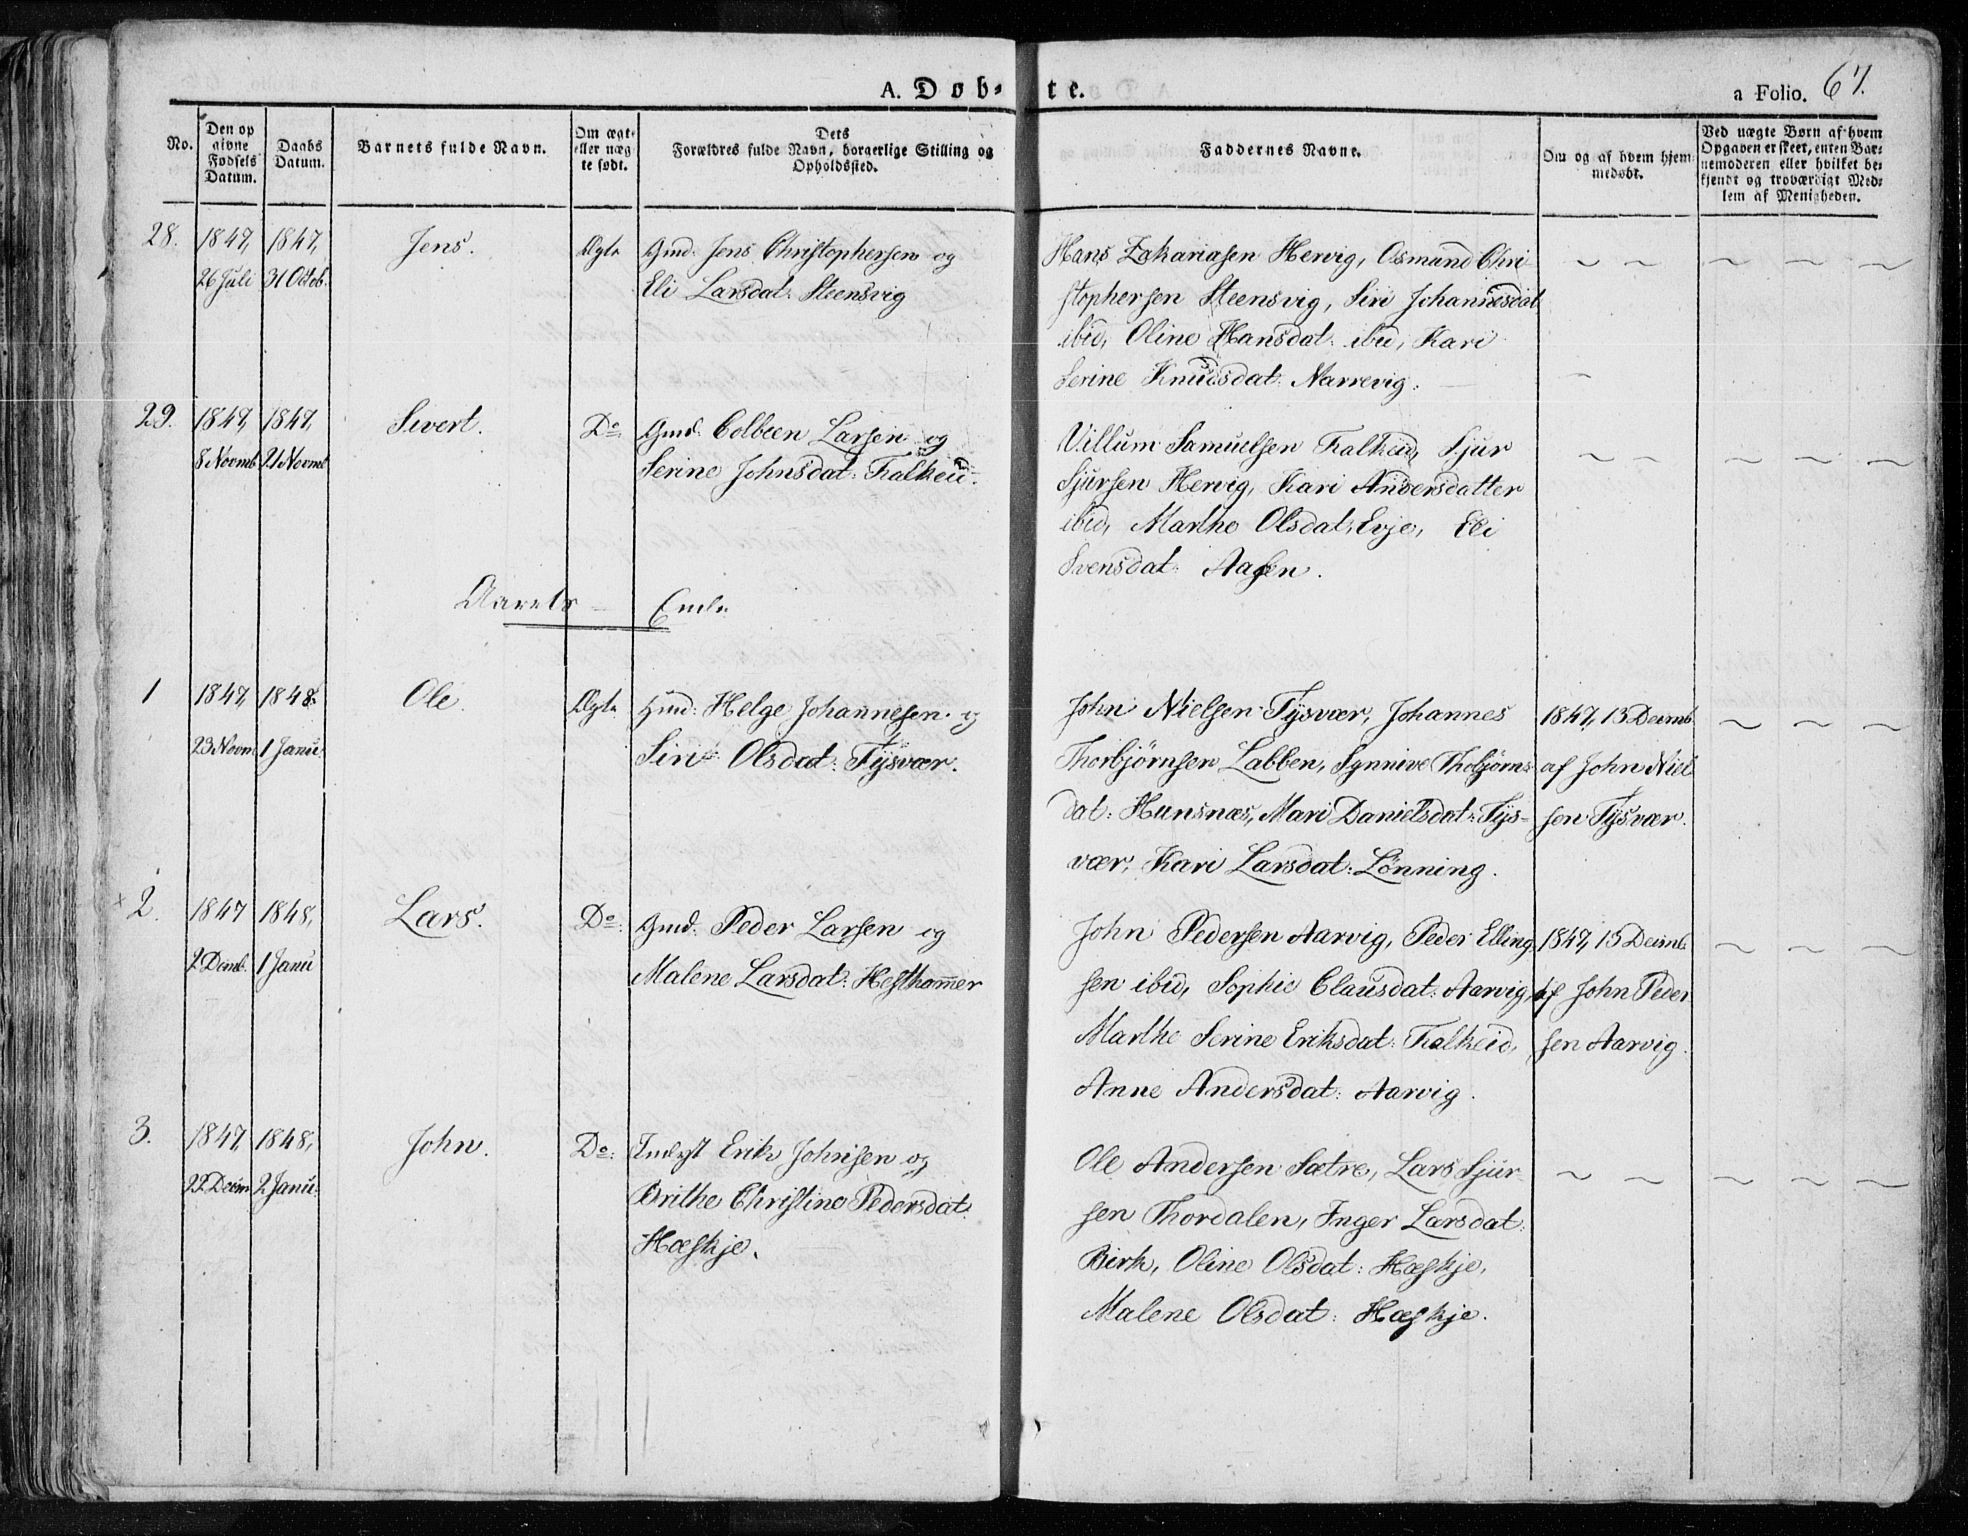 A. Døb-te.
a Folio. 67.
No.
Den op givne Fødsels Datum.
Daabs Datum.
Barnets fulde Navn.
Om ægte eller uægte født.
Dets Forældres fulde Navn, borgerlige Stilling og Opholdssted.
Faddernes Navne.
Om og af hvem hjemmedøbt.
Ved uægte Børn af hvem Opgaven er skeet, enten Barnemoderen eller hvilket bekjendt og troværdigt Medlem af Menigheden.
28. 1847, 1847, Jens. Ægte Gmd: Jens Christophersen og
26 Juli 31 Octob. Eli Larsdat: Steensvig
Hans Zakariasen Hervig, Osmund Chri-
stophersen Steensvig, Siri Johannesdat
ibid, Oline Hansdat: ibid, Kari
Serine Knudsdat: Narrevig.
29. 1847, 1847, Sivert. Do Gmd: Colbeen Larsen og
8 Novmb 21 Novmb Serine Johnsdat: Falkeid.
Villum Samuelsen Falkeid, Sjur
Sjursen Hervig, Kari Andersdatter
ibid, Marthe Olsdat, Evje, Eli
Svensdat: Aasen.
Aarets Ende
1 1847, 1848 Ole. Ægte Huusd: Helge Johannesen og
23 Novm 1 Janu. Siri Olsdat: Tysvær.
John Nielsen Tysvær, Johannes
Thorbjørnsen Labben, Synnive Thobjørns
dat: Hunsnæs, Mari Danielsdat: Tys-
vær, Kari Larsdat: Lönning.
1847, 15 Decmb
af John Niel
sen Tysvær.
2. 1847 1848, Lars. Do: Gmd: Peder Larsen og
2 Decmb. 1 Janu Malene Larsdat: Hesthammer
John Pedersen Aarvig, Peder Elling
sen ibid, Sophie Clausdat: Aarvig,
Marthe Serine Eriksdat: Falkeid,
Anne Andersdat: Aarvig.
1847, 15 Decmb.
af John Peder
sen Aarvig.
3. 1847, 1848, John. Do: Inderst Erik Johnsen og
22 Decm 2 Janu. Brithe Christine Pedersdat:
Hæskje.
Ole Andersen Sætre, Lars Sjur-
sen Thordalen, Inger Larsdat:
Birk, Oline Olsdat: Hæskje,
Malene Olsdat: Hæskje.